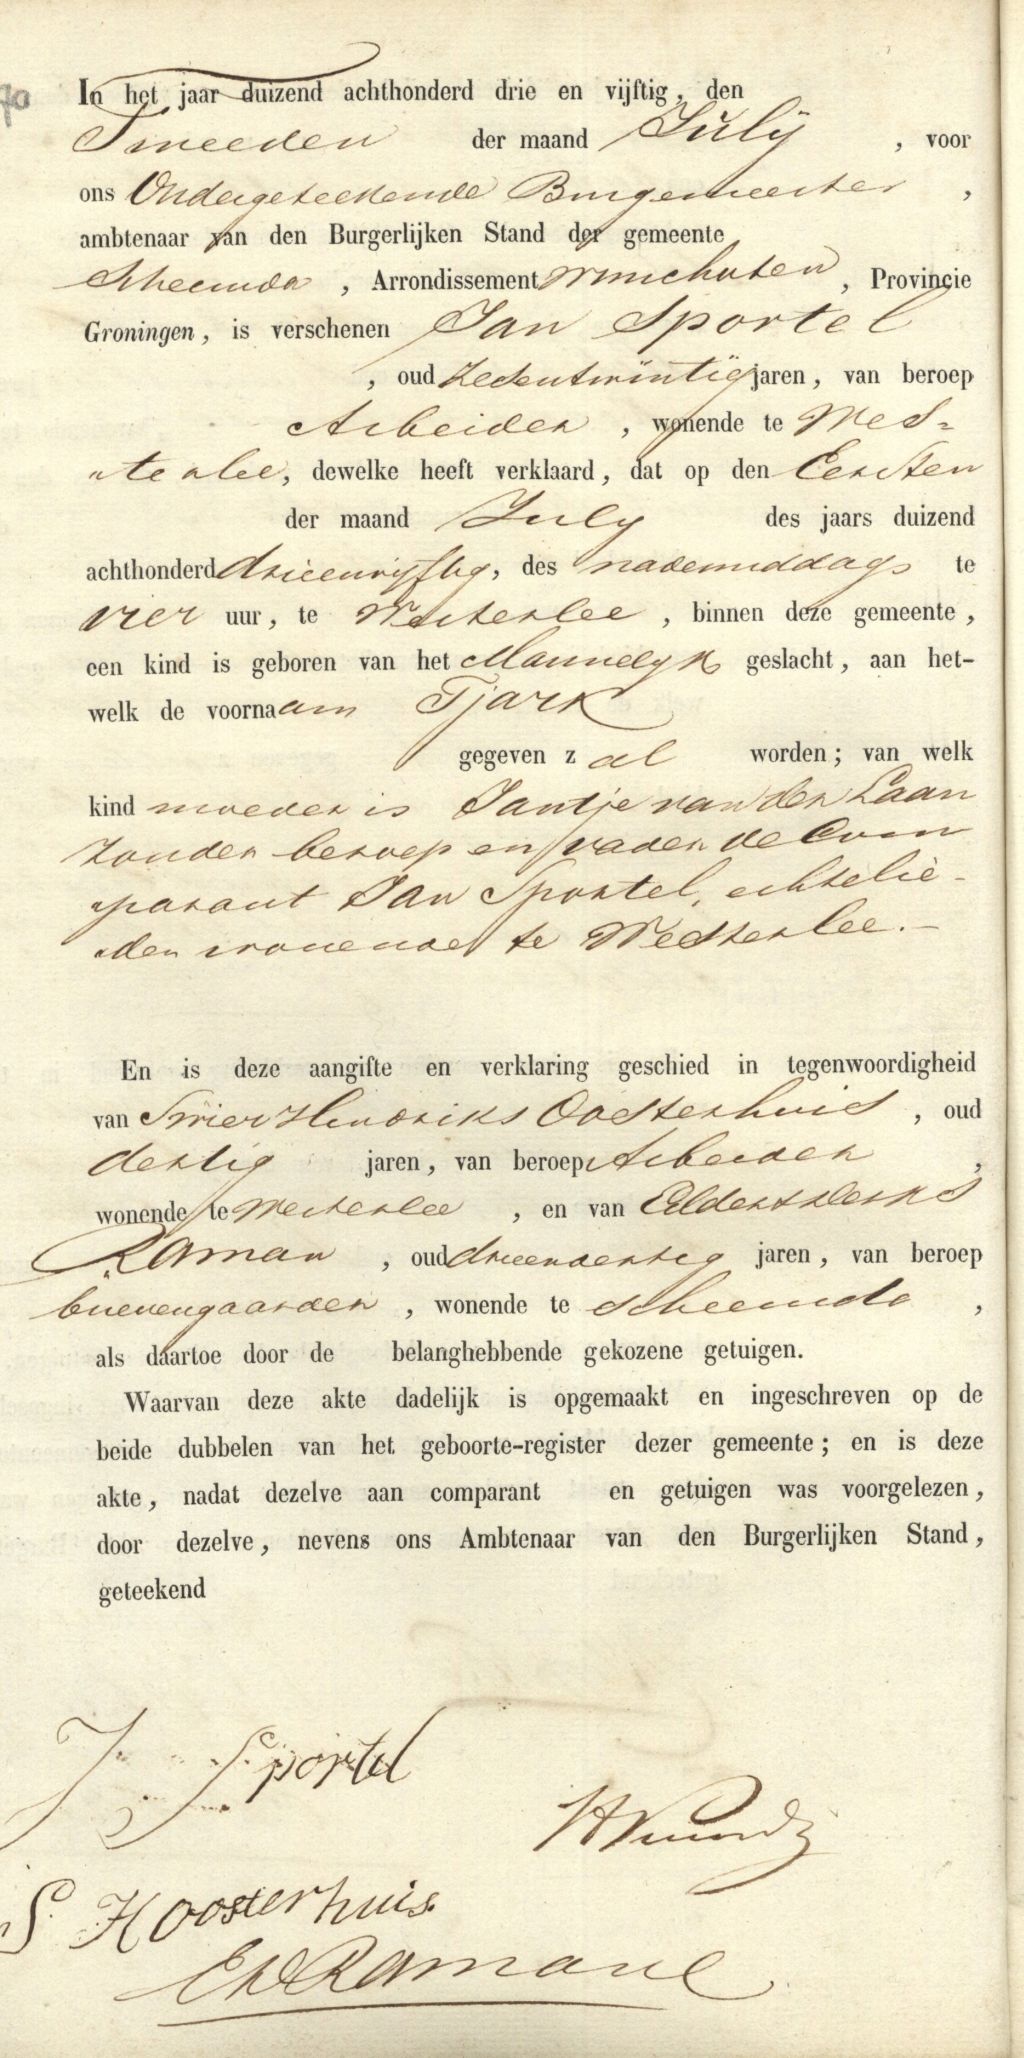 70
In het jaar duizend achthonderd drie en vijftig, den
Tweeden der maand Julij, voor
ons Ondergeteekende Burgemeester,
ambtenaar van den Burgerlijken Stand der gemeente
Scheemda, Arrondissement Winschoten, Provincie
Groningen, is verschenen Jan Sportel
, oud zesentwintig jaren, van beroep
Arbeider, wonende te Wes-
terlee, dewelke heeft verklaard, dat op den Eersten
der maand July des jaars duizend
achthonderd drieenvyftig, des nademiddags te
vier uur, te Westerlee, binnen deze gemeente,
een kind is geboren van het Mannelyk geslacht, aan het-
welk de voornaam Tjark
gegeven zal worden; van welk
kind moeder is Jantje van der Laan
zonder beroep en vader de Com
parant Jan Sportel, echtelie-
den wonende te Westerlee.-
En is deze aangifte en verklaring geschied in tegenwoordigheid
van Swier Hindriks Oosterhuis, oud
dertig jaren, van beroep Arbeider,
wonende te Westerlee, en van Eildert Derks
Raman, oud drieendertig jaren, van beroep
brievengaarder, wonende te Scheemda,
als daartoe door de belanghebbende gekozene getuigen.
Waarvan deze akte dadelijk is opgemaakt en ingeschreven op de
beide dubbelen van het geboorte-register dezer gemeente; en is deze
akte, nadat dezelve aan comparant en getuigen was voorgelezen,
door dezelve, nevens ons Ambtenaar van den Burgerlijken Stand,
geteekend
J Sportel
S. H Oosterhuis
ED Raman